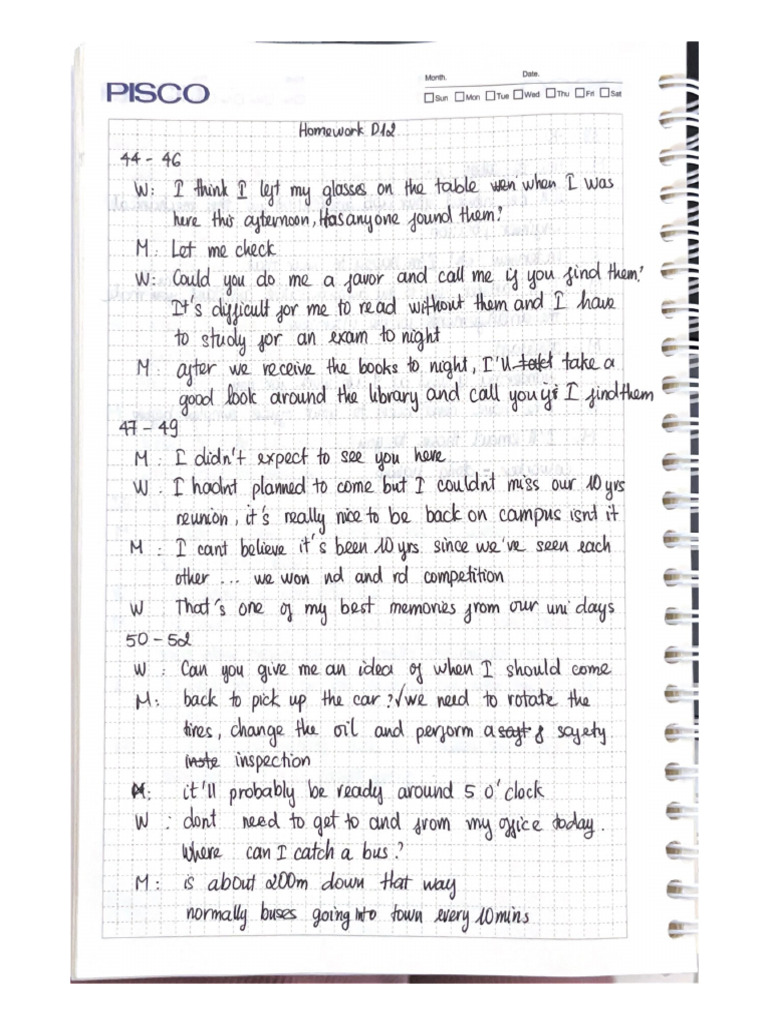 PISCO
Month. Date.
Sun Mon Tue Wed Thu Fri Sat
Homework D12
44 - 46
W: I think I left my glasses on the table wen when I was
here this afternoon, Has anyone found them?
M: Let me check
W: Could you do me a favor and call me if you find them?
It's difficult for me to read without them and I have
to study for an exam to night
M: after we receive the books to night, I'll take a
good look around the library and call you if I find them
47 - 49
M: I didn't expect to see you here
W: I hadnt planned to come but I couldnt miss our 10 yrs
reunion, it's really nice to be back on campus isnt it
M: I cant believe it's been 10 yrs since we've seen each
other ... we won nd and rd competition
W That's one of my best memories from our uni days
50 - 52
W: Can you give me an idea of when I should come
M: back to pick up the car? √ we need to rotate the
tires, change the oil and perform a safety
inspection
M: it'll probably be ready around 5 o'clock
W: dont need to get to and from my office today.
Where can I catch a bus?
M: is about 200m down that way
normally buses going into town every 10 mins